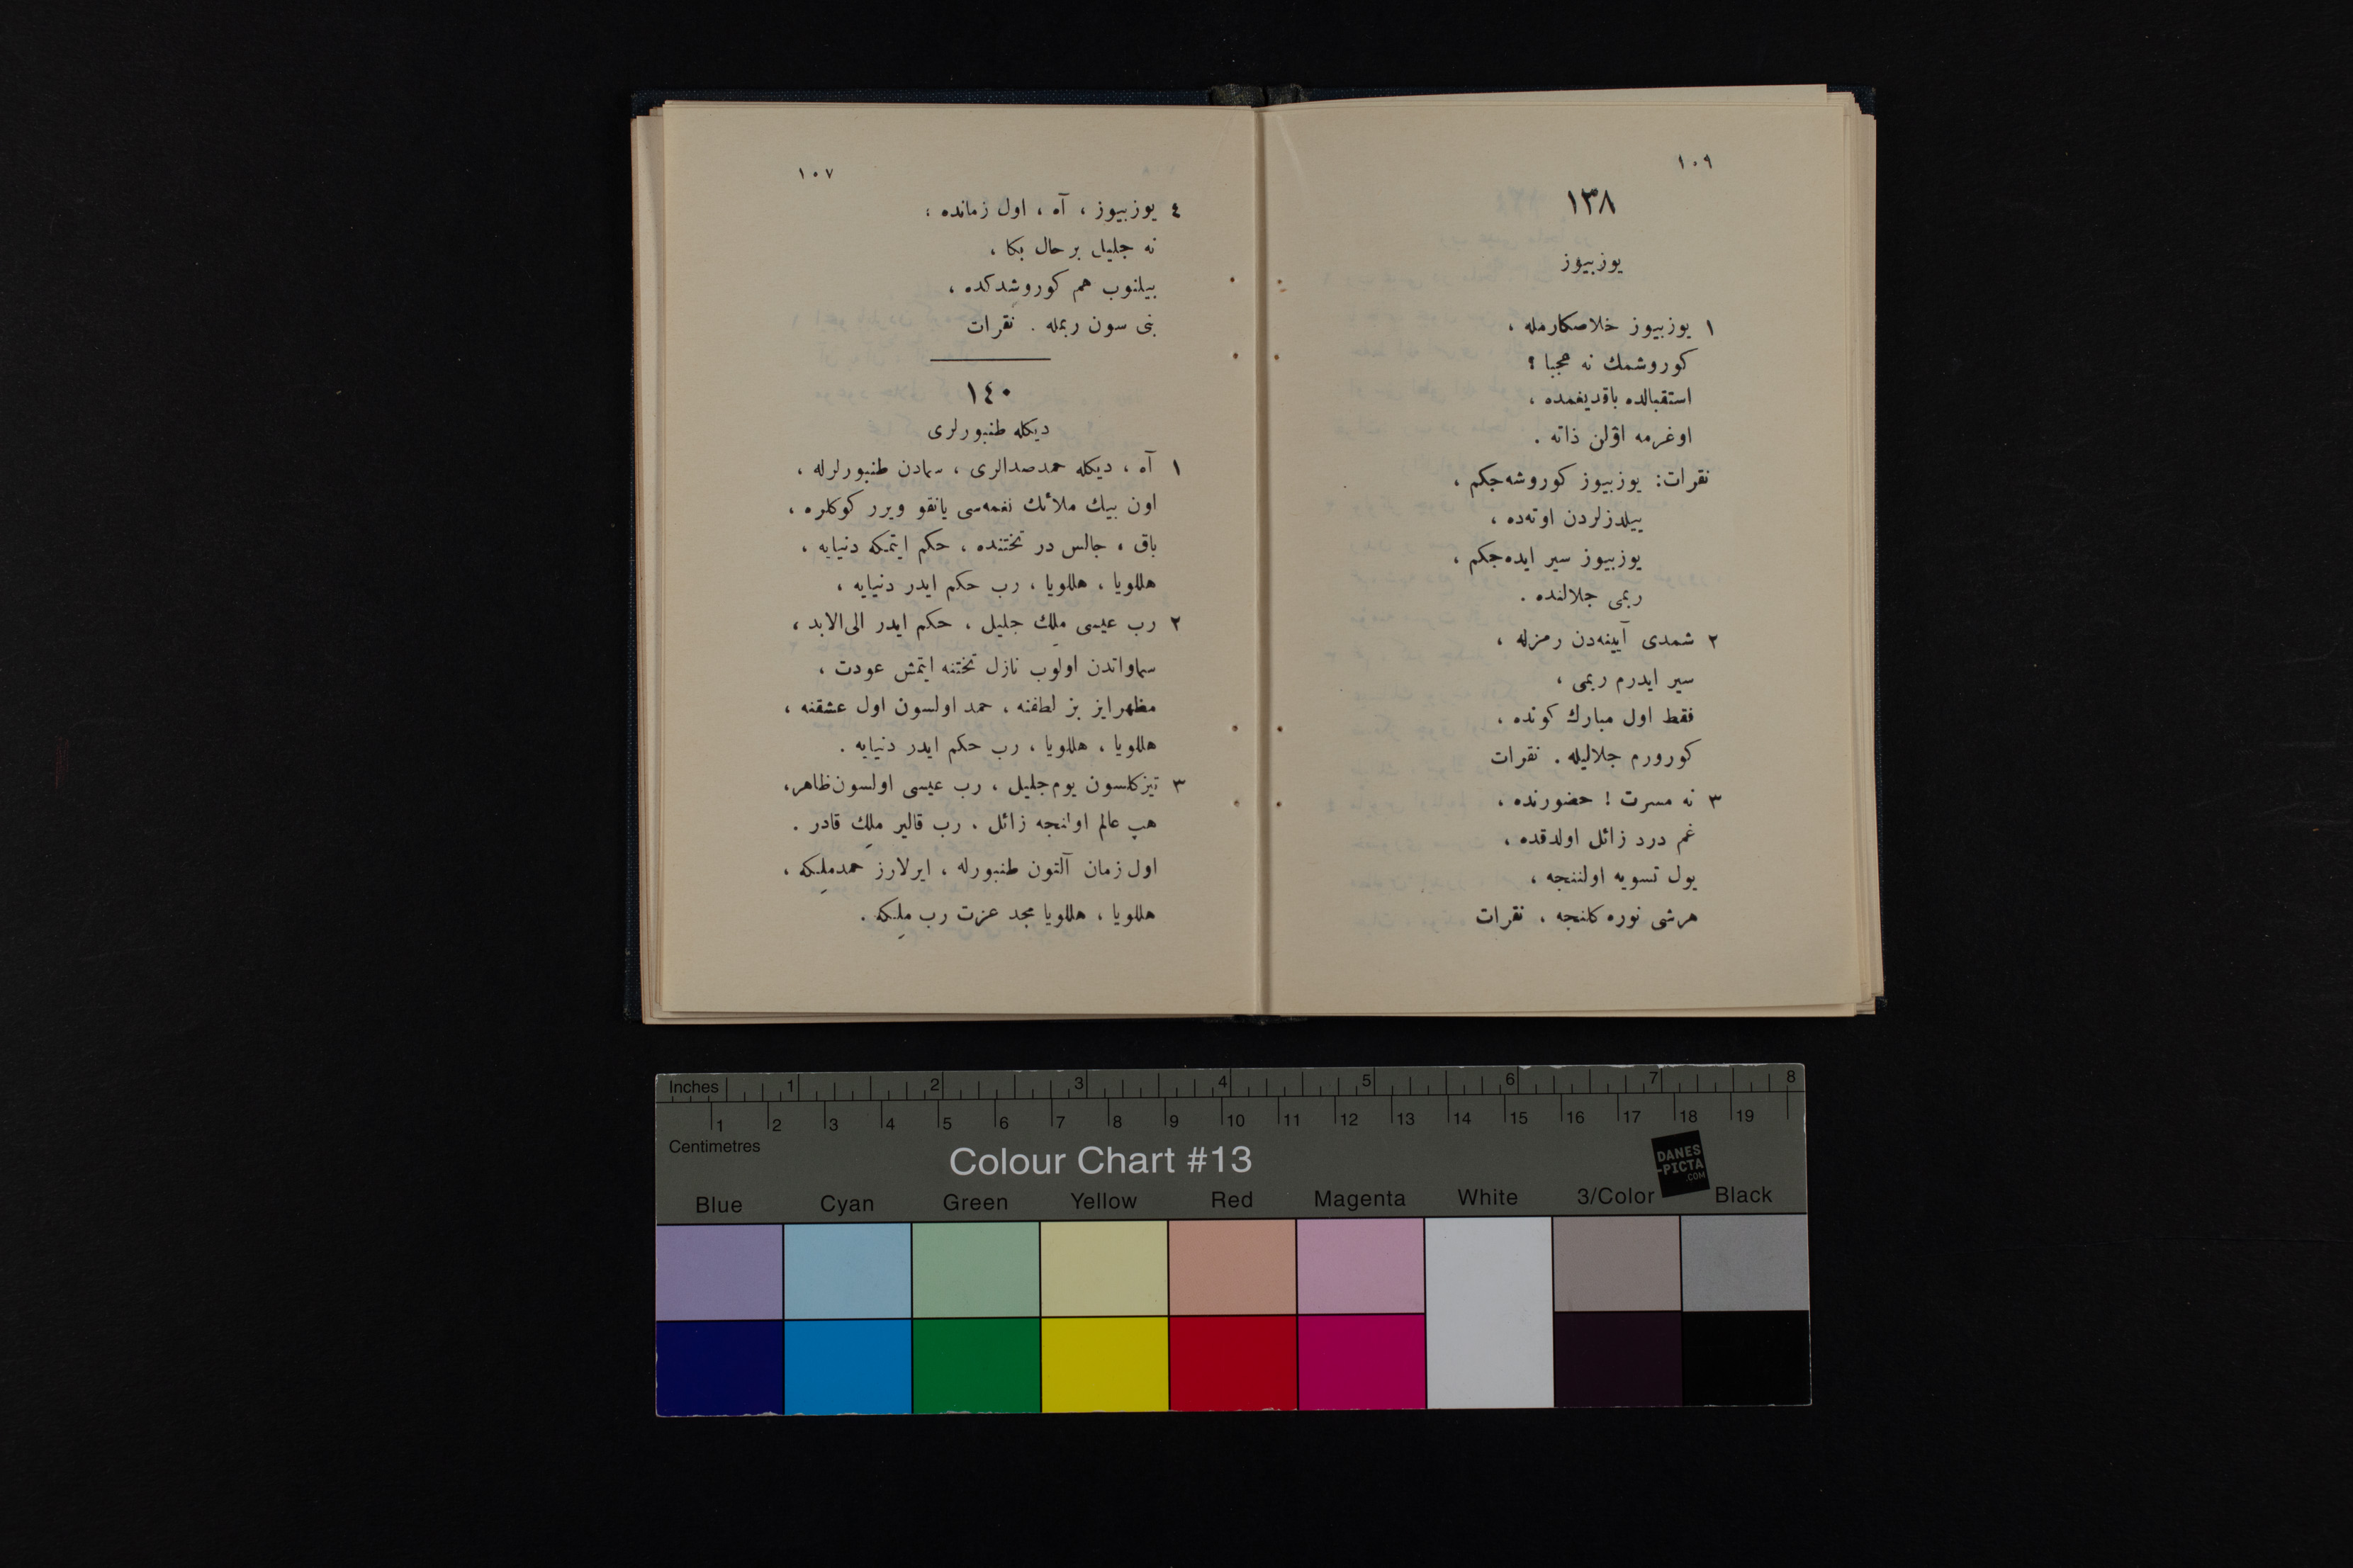 ١٠٩
١٣٨
يوزبيوز
١ يوزبيوز خلاصكارمله ،
كوروشمك نه عجبا ؟
استقبالده باقديغمده ،
اوغرمه اۆلن ذاته .
نقرات: يوزبيوز كوروشه‌جكم ،
ييلدزلردن اوته‌ده ،
يوزبيوز سير ايده‌جكم ،
ربمى جلالنده .
٢ شمدى آيينه‌دن رمزله ،
سير ايدرم ربمى ،
فقط اول مبارك كونده ،
كورورم جلاليله . نقرات
٣ نه مسرت ! حضورنده ،
غم درد زائل اولدقده ،
يول تسويه اولننجه ،
هرشى نوره كلنجه ، نقرات
١٠٧
٤ يوزبيوز ، آه ، اول زمانده ،
نه جليل بر حال بكا ،
بيلنوب هم كوروشدكده ،
بنى سون ربمله . نقرات
١٤٠
ديكله طنبورلرى
١ آه ، ديكله حمدصدالرى ، سمادن طنبورلرله ،
اون بيك ملائك نغمه‌سى يانقو ويرر كوكلره ،
باق ، جالس در تختنده ، حكم ايتمكه دنيايه ،
هللويا ، هللويا ، رب حكم ايدر دنيايه ،
٢ رب عيسى ملِك جليل ، حكم ايدر الى‌الابد ،
سماواتدن اولوب نازل تختنه ايتمش عودت ،
مظهرايز بز لطفنه ، حمد اولسون اول عشقنه ،
هللويا ، هللويا ، رب حكم ايدر دنيايه .
٣ تيزكلسون يوم‌جليل ، رب عيسى اولسون‌ظاهر،
هپ عالم اولنجه زائل ، رب قالير ملِك قادر .
اول زمان آلتون طنبورله ، ايرلارز حمدملِكه ،
هللويا ، هللويا مجد عزت رب ملِكه .
Inches 1 2 3 4 5 6 7 8
1 2 3 4 5 6 7 8 9 10 11 12 13 14 15 16 17 18 19
Centimetres
Colour Chart #13
DANES
-PICTA
.COM
Blue Cyan Green Yellow Red Magenta White 3/Color Black